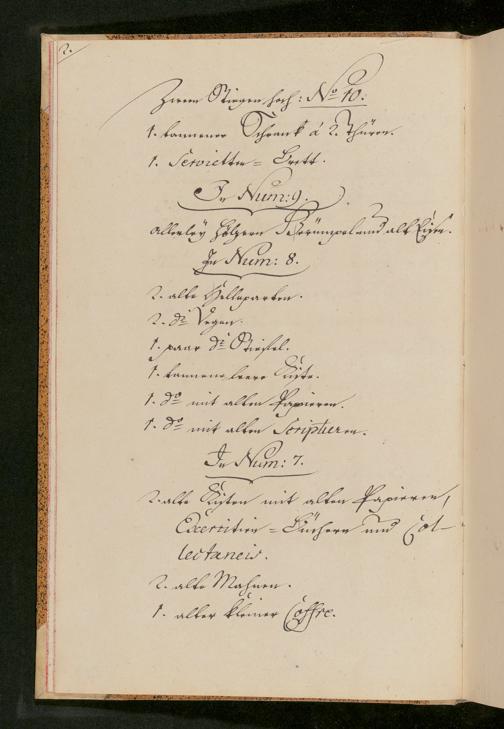 2.
Zwen Stiegen hoch: No 10:
1. tannener Schrank á 2. Thüren.
1. Serviettes= Brett.
In Num: 9.
allerley hölzern Gerümpel und alt Eisen.
In Num: 8.
2. alte Helleparten.
2. do Degen.
1. paar do Stiefel.
1. tannene leere Kiste.
1. do mit alten Papieren.
1. do mit alten Scripturen.
In Num: 7.
2. alte Kisten mit alten Papieren,
Exercitien= Büchern und Col-
lectaneis.
2. alte Mahnen.
1. alter kleiner Coffre.